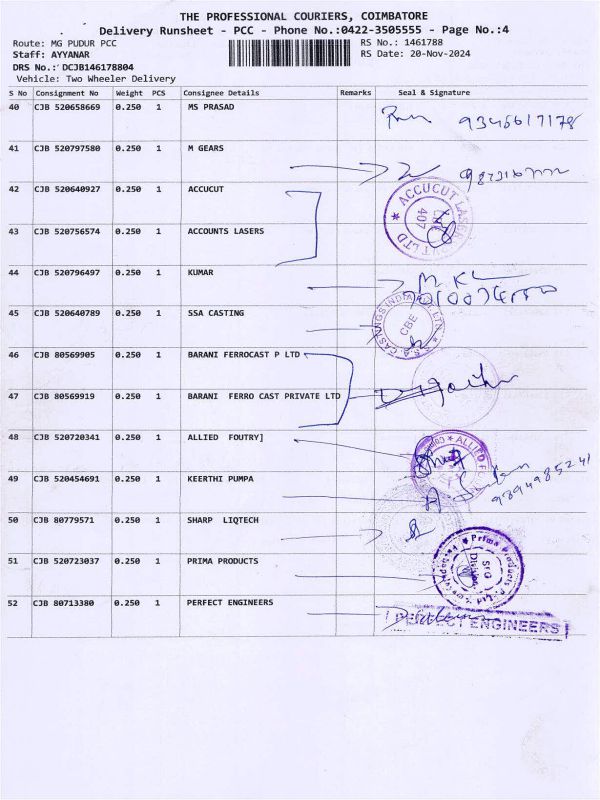 THE PROFESSIONAL COURIERS, COIMBATORE
Delivery Runsheet - PCC - Phone No.:0422-3505555 - Page No.:4
Route: MG PUDUR PCC
RS No.: 1461788
Staff: AYYANAR
RS Date: 20-Nov-2024
DRS No.: DCJB146178804
Vehicle: Two Wheeler Delivery
S No Consignment No Weight PCS Consignee Details Remarks Seal & Signature
40 CJB 520658669 0.250 1 MS PRASAD
9345617178
41 CJB 520797580 0.250 1 M GEARS
42 CJB 520640927 0.250 1 ACCUCUT
ACCUCUT LASER PVT LTD
CBE
407
43 CJB 520756574 0.250 1 ACCOUNTS LASERS
44 CJB 520796497 0.250 1 KUMAR
45 CJB 520640789 0.250 1 SSA CASTING
S.S.A. CASTINGS INDIA LTD.
CBE
46 CJB 80569905 0.250 1 BARANI FERROCAST P LTD
47 CJB 80569919 0.250 1 BARANI FERRO CAST PRIVATE LTD
48 CJB 520720341 0.250 1 ALLIED FOUTRY]
ALLIED
49 CJB 520454691 0.250 1 KEERTHI PUMPA
9394985241
50 CJB 80779571 0.250 1 SHARP LIQTECH
51 CJB 520723037 0.250 1 PRIMA PRODUCTS
Prima Products
SFG
Division
52 CJB 80713380 0.250 1 PERFECT ENGINEERS
PERFECT ENGINEERS